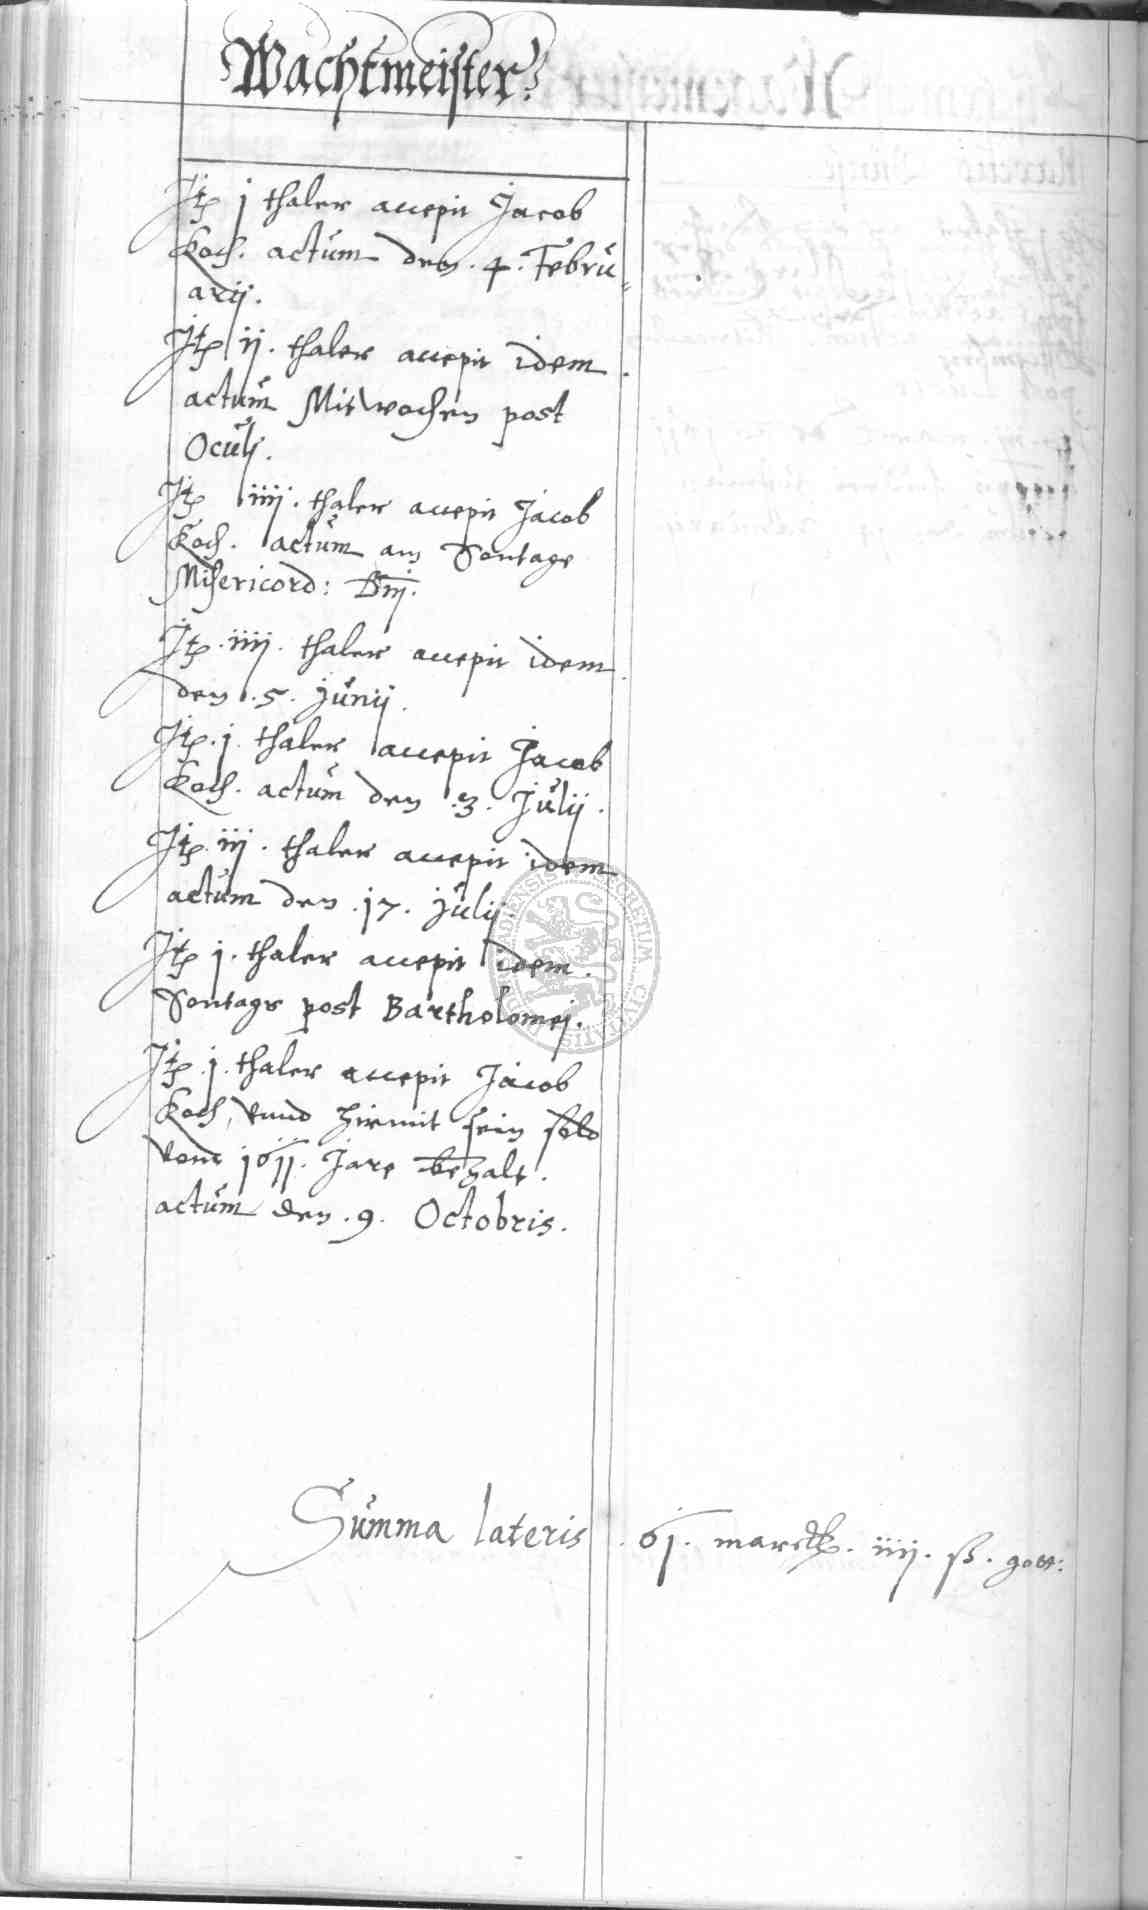 Wachtmeister
Jtem j thaler accepit Jacob
Koch. actum den. 4. Febru=
arij.
Jtem ij. thaler accepit idem
actum Mitwochen post
Oculj.
Jtem iiij. thaler accepit Jacob
Koch. actum am Sontage
Misericord: Dnj.
Jtem .iiij. thaler accepit idem
den .5. junij.
Jtem .j. thaler accepit Jacob
Koch. actum den .3. Julij.
Jtem .iij. thaler accepit idem
actum den .17. julij.
Jtem j. thaler accepit idem.
Sontags post Bartholomej.
Jtem .j. thaler accepit Jacob
Koch, vnnd hirmit sein sold
vom 1611. Jare bezalt.
actum den .9. Octobris.
Summa lateris .61. marck. iiij. ß. gott:
SECRETUM CIVITATIS